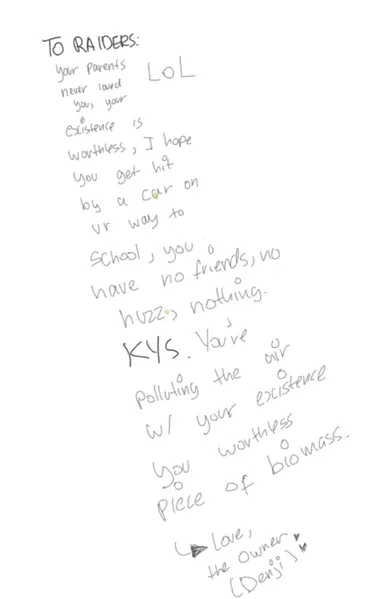 TO RAIDERS:
your parents LOL
never loved
you, your
existence is
worthless, I hope
you get hit
by a car on
ur way to
school, you
have no friends, no
huzz, nothing.
KYS. You're
polluting the air
w/ your existence
you worthless
piece of biomass.
↳ Love,
the owner ♥
(Denji) ♥